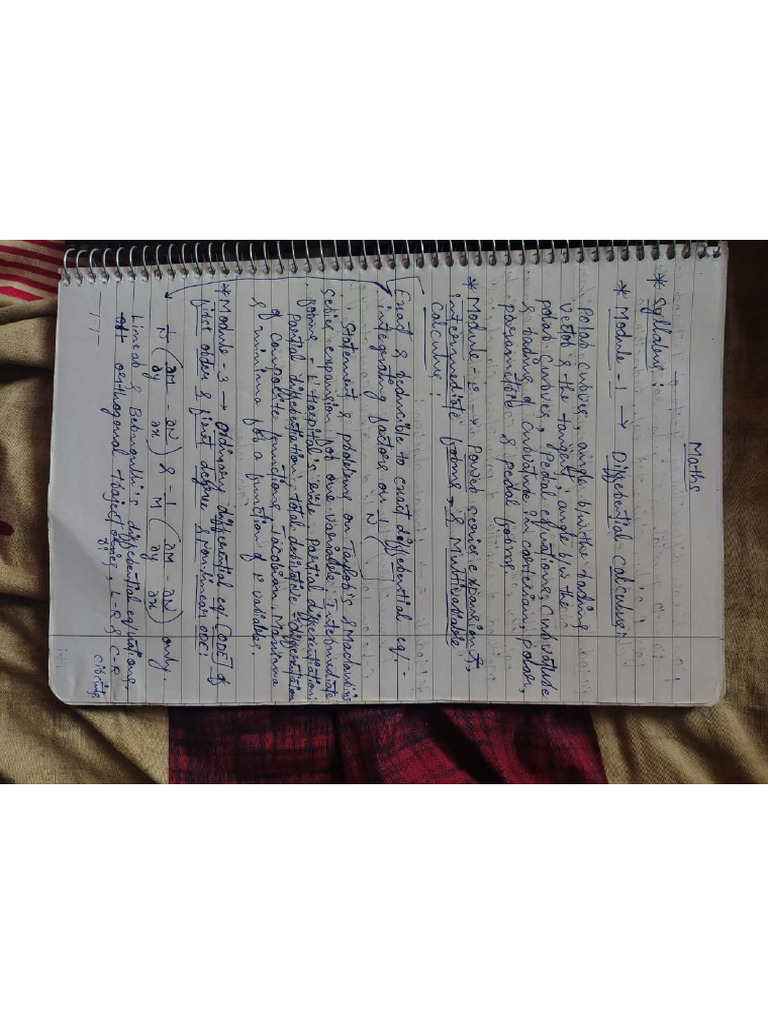 Maths
* Syllabus :
* Module - 1 → Differential calculus :
Polar curves, angle b/w the radius
vector & the tangent, angle b/w the
polar curves, Pedal equations, curvature
& radius of curvature in cartesian, polar,
parametric & pedal forms.
* Module - 2 → Power series expansions,
intermediate forms & Multivariable
calculus :
Exact & reducible to exact differential eq/-
integrating factors on 1/N (
Statement & problems on Taylor's & Maclaurin's
series expansion for one variable. Intermediate
forms - L' Hospital's rule. Partial differentiation:
Partial differentiation, total derivative & differentiation
of composite functions, Jacobian, Maxima
& minima for a function of 2 variables.
* Module - 3 → Ordinary differential eq/ (ODE) of
first order & first degree & non-linear ODE :
1/N (∂M/∂y - ∂N/∂x) & -1/M (∂M/∂y - ∂N/∂x) only.
Linear & Bernoulli's differential equations,
orthogonal trajectories, L-R & C-R
circuits